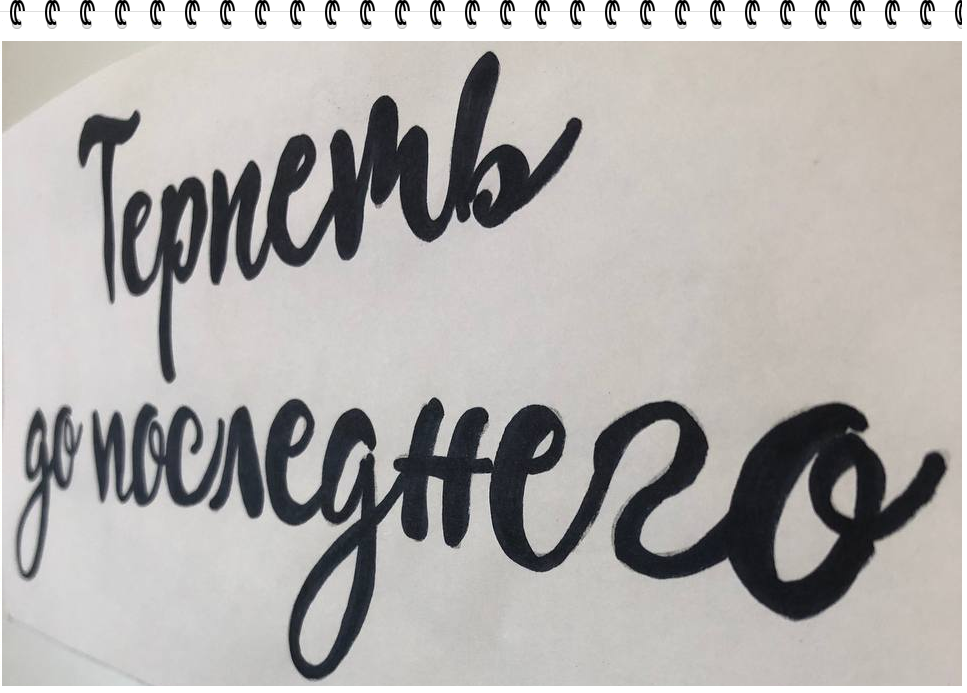 Терпеть
до последнего